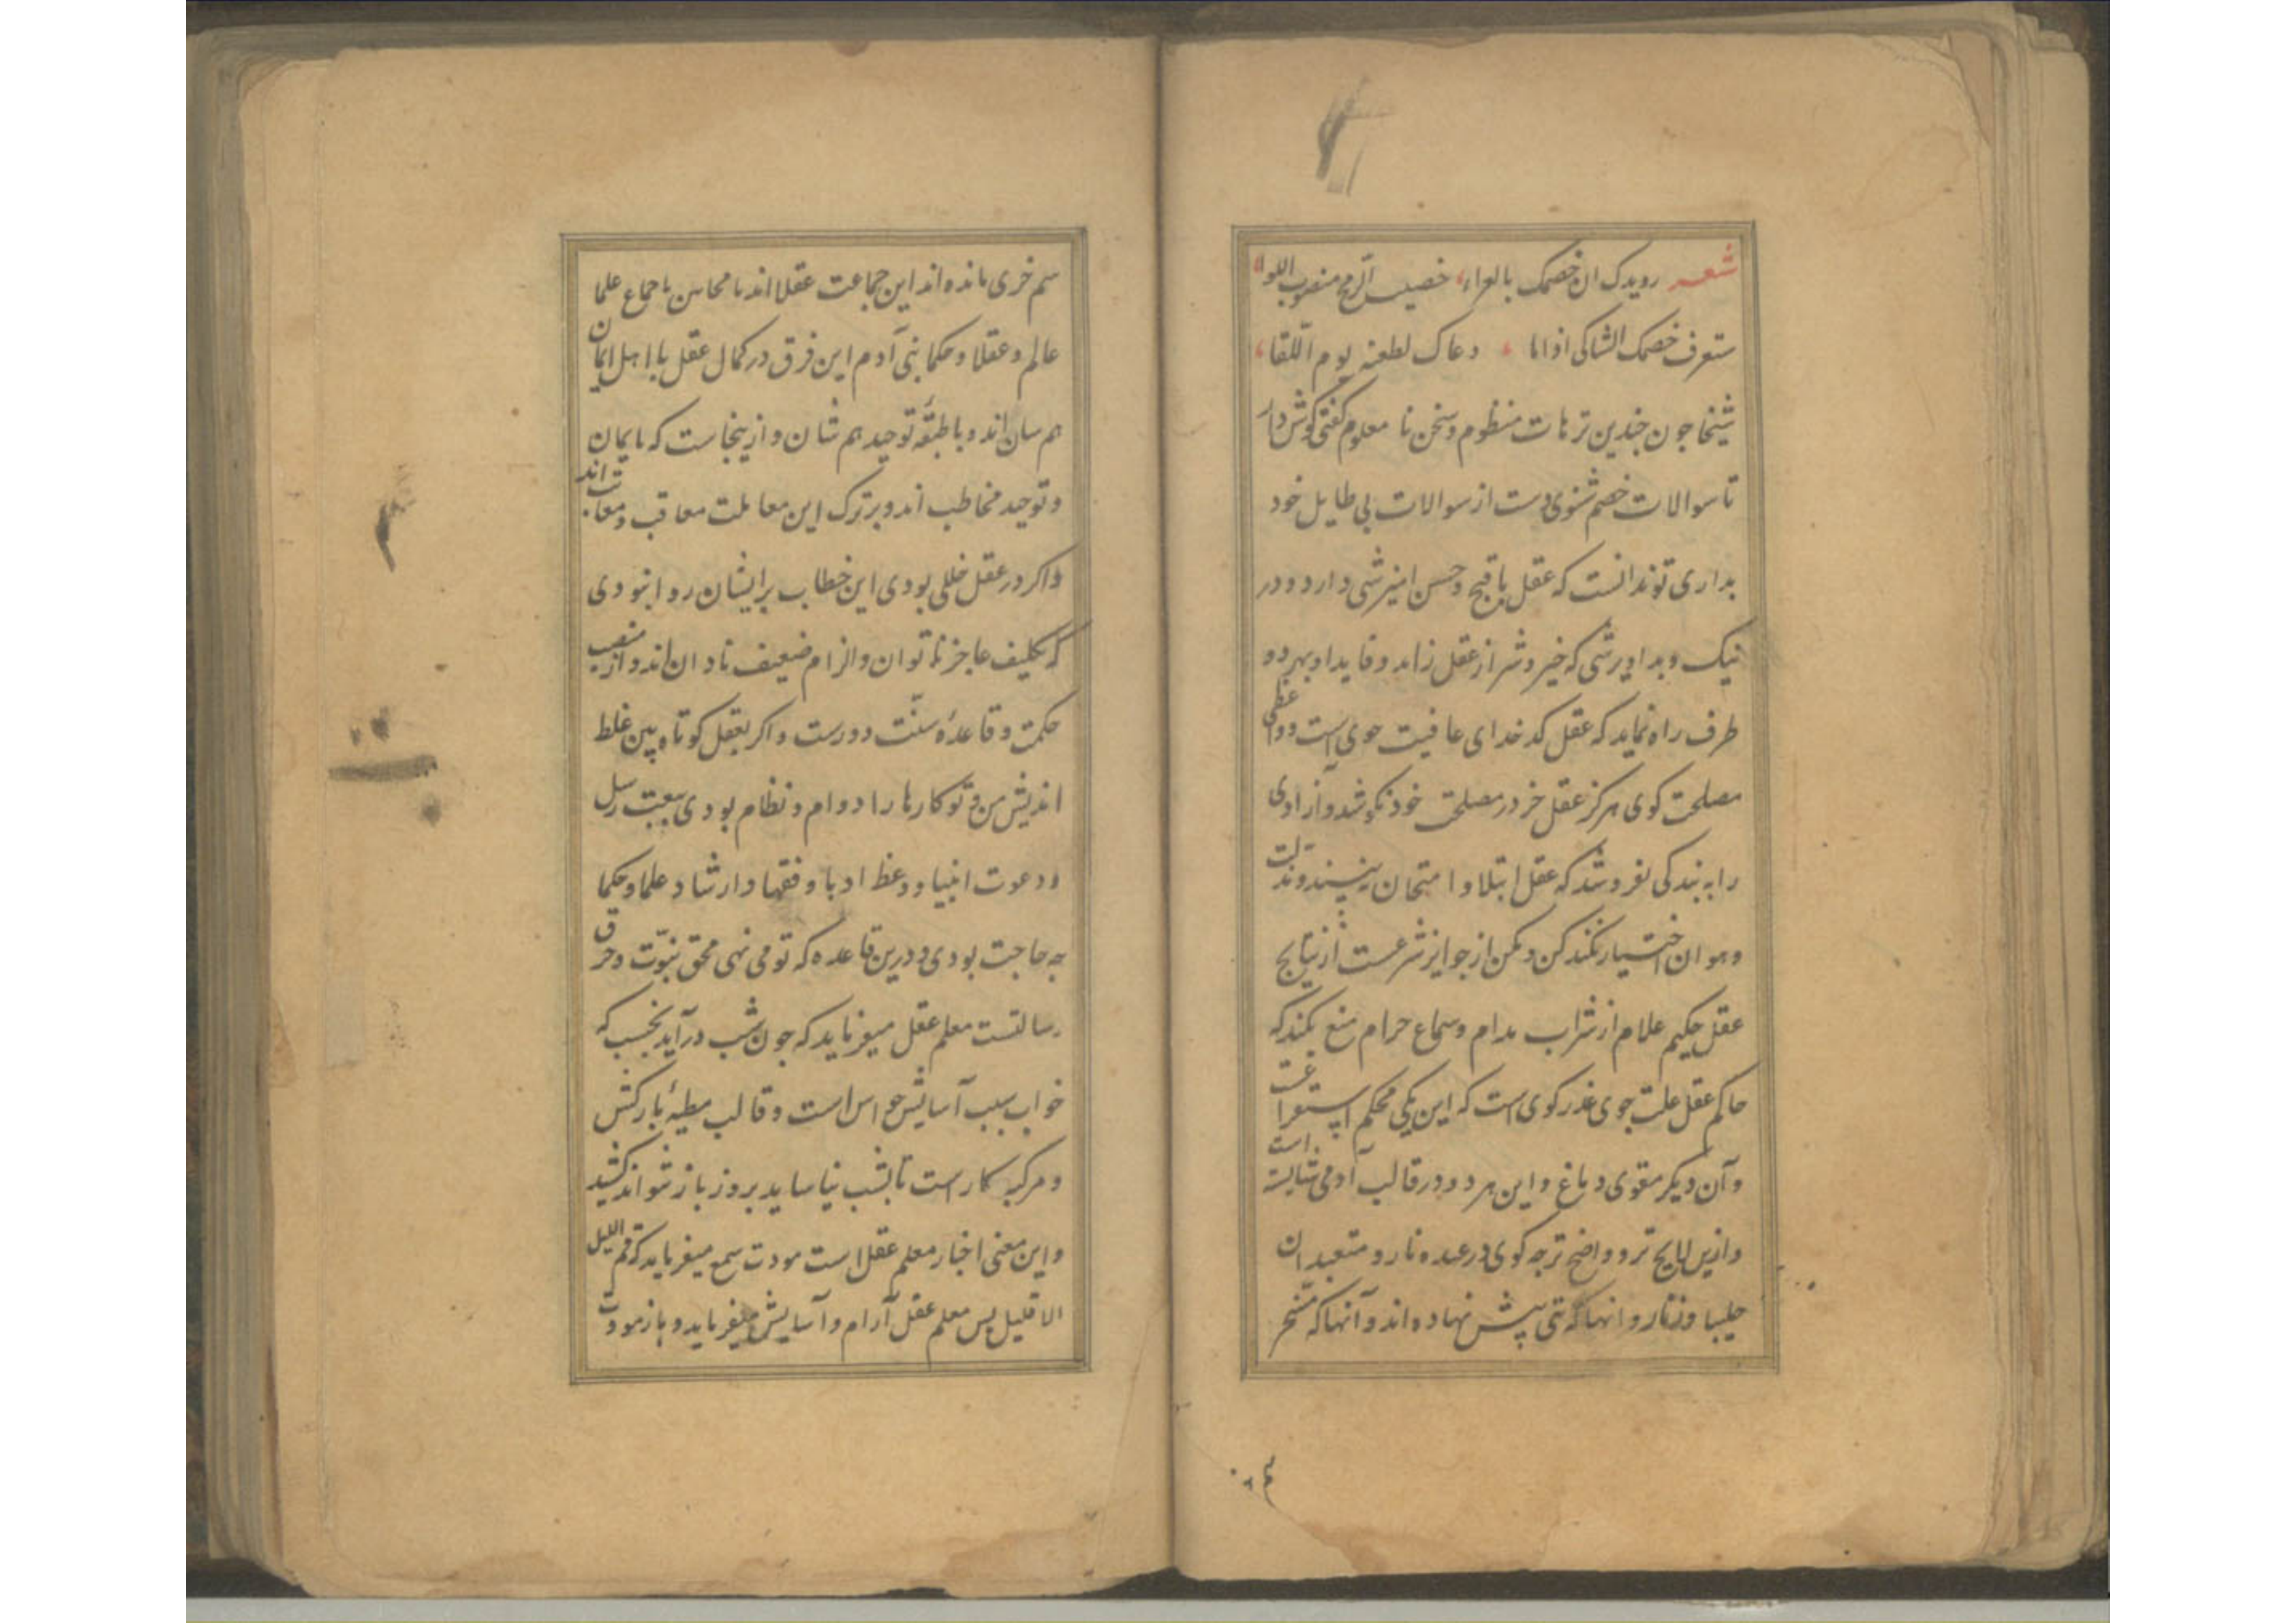 شعر رویدک ان خصمک بالعراء خصیب الرمح منصوب اللواء
ستعرف خصمک الشاکی اذا ما دعاک لطعنه یوم اللقا
شیخا چون چندین ترهات منظوم و سخن نا معلوم گفتی گوش دار
تا سوالات خصم شنوی دست از سوالات بی طایل خود
بداری تو ندانست که عقل با قبح و حسن امیزشی دارد و در
نیک و بد اویزشی که خیر و شر از عقل زاید و قاید او بهر دو
طرف راه نماید که عقل کدخدای عافیت جوی است و واعظی
مصلحت کوی هرکز عقل خر در مصلحت خود نکوشد و آزادی
را به بندکی نفروشد که عقل ابتلا و امتحان نپسندد و مذلت
و هوان اختیار نکند کن و مکن از جوایز شرعست از نتایج
عقل حکیم علام از شراب مدام و سماع حرام منع نکند که
حاکم عقل علت جوی عذر کوی است که این یکی محکم استفراغست
و آن دیکر مقوی دماغ و این هر دو در قالب آدمی شایسته است
و ازین لایح تر و واضح تر چه کوی در عبده نار و متعبدان
چلیپا و زنار و انها که بتی پیش نهاده اند و آنها که مسخر
سم خری مانده اند این جماعت عقلا اند با محاسن باجماع علما
عالم و عقلا و حکما بنی آدم این فرق در کمال عقل با اهل ایمان
هم سان اند و با طبقه توحید هم شان و ازینجاست که بایمان
و توحید مخاطب اند و بر ترک این معاملت معاقب و معاتب اند
و اکر در عقل خللی بودی این خطاب بر ایشان روا نبودی
که تکلیف عاجز ناتوان و الزام ضعیف نادان اند و از منصب
حکمت و قاعدهٔ سنّت دورست و اکر بعقل کوتاه بین غلط
اندیش من و تو کارها را دوام و نظام بودی ببعثت رسل
و دعوت انبیا و وعظ ادبا و فقها و ارشاد علما و حکما
چه حاجت بودی و درین قاعده که تو می نهی محق نبوّت و خرق
رسالتست معلم عقل میفرماید که چون شب درآید بخسب که
خواب سبب آسایش حواس است و قالب مطیهٔ بارکش
و مرکب کار است تا بشب نیاساید بروز بار نتواند کشید
و این معنی اخبار معلم عقل است مودت سمع میفرماید که قم اللیل
الا قلیل پس معلم عقل آرام و آسایش میفرماید و باز مودت